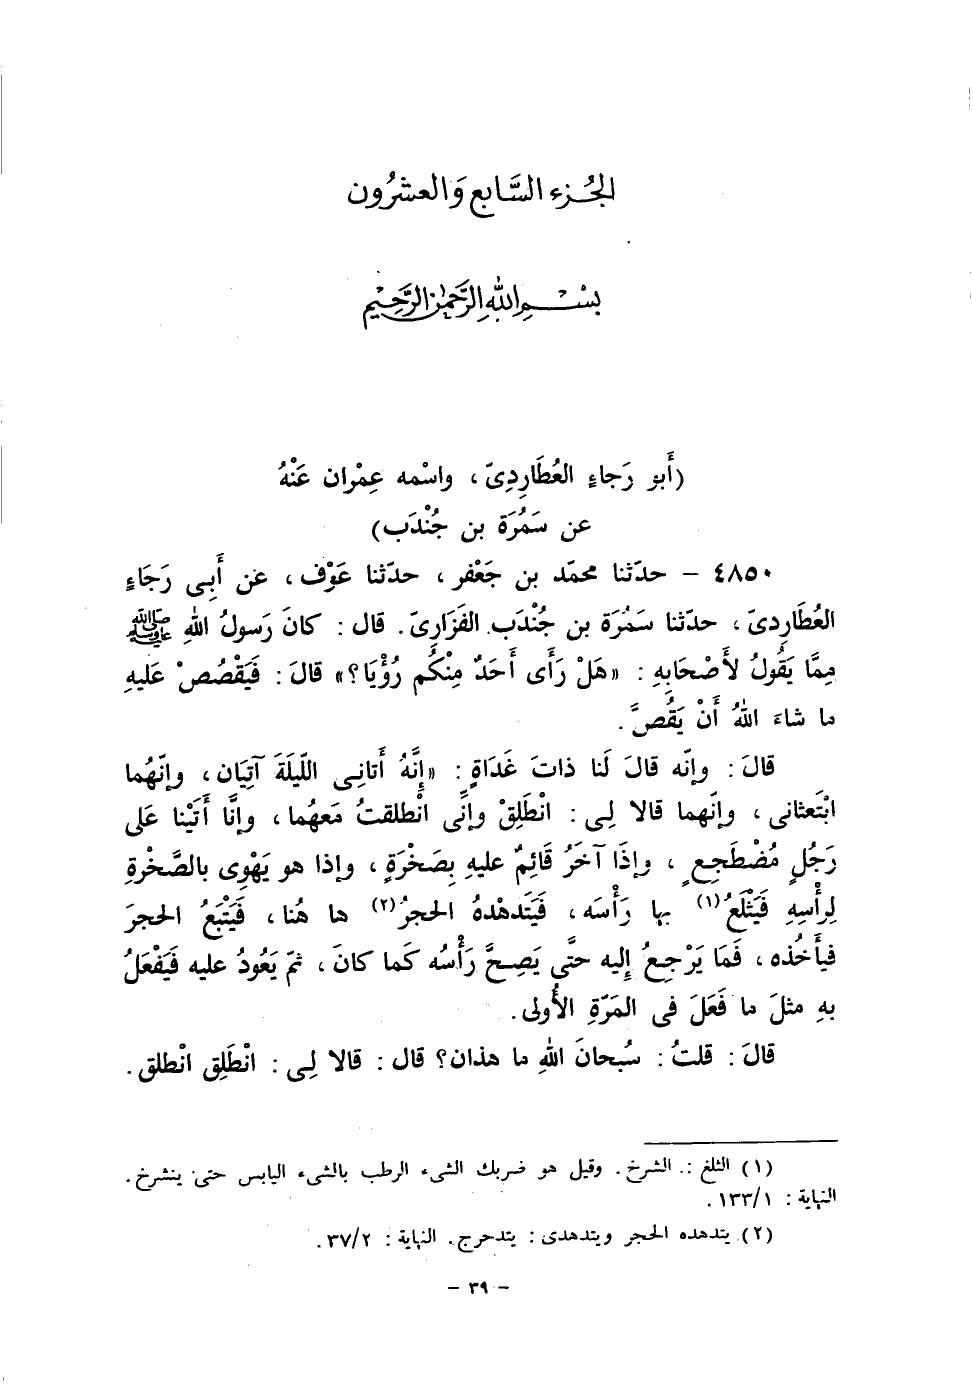 الجُزء السَّابع وَالعشرُون
بسْم الله الرَّحمٰن الرَّحيْم
(أَبو رَجاءٍ العُطَارِدِىّ ، واسْمه عِمْران عَنْهُ
عن سَمُرَة بن جُنْدَب)
٤٨٥٠ – حدّثنا محمّد بن جَعْفر ، حدّثنا عَوْف ، عن أَبِى رَجَاءٍ
العُطَارِدىّ ، حدّثنا سَمُرَة بن جُنْدَب الفَزَارِىّ . قال : كانَ رَسولُ اللهِ ﷺ
مِمَّا يَقُولُ لأَصْحَابِهِ : «هَلْ رَأَى أَحَدٌ مِنْكُم رُؤْيَا؟» قالَ : فَيَقْصُصْ عَليهِ
ما شاءَ اللهُ أَنْ يَقُصَّ .
قالَ : وإنّه قالَ لَنا ذاتَ غَدَاةٍ : «إِنَّهُ أَتانِى اللّيلَةَ آتِيَان ، وإنّهُما
ابْتَعثانى ، وإنّهما قالا لِى : انْطَلِقْ وإنِّى انْطلقتُ مَعهُما ، وإنَّا أَتَيْنا عَلى
رَجُلٍ مُضْطَجِعٍ ، وإذَا آخَرُ قَائِمٌ عليهِ بِصَخْرَةٍ ، وإذا هو يَهْوِى بالصَّخْرةِ
لِرأْسِهِ فَيَثْلَغُ(١) بها رَأْسَه ، فَيَتَدهْدهُ الحجرُ(٢) ها هُنا ، فَيَتْبَعُ الحجرَ
فيأْخُذه ، فَمَا يَرْجِعُ إِليه حتَّى يَصِحَّ رَأْسُه كَما كانَ ، ثمّ يَعُودُ عليه فَيَفْعَلُ
بهِ مثلَ ما فَعَلَ فى المَرّةِ الأُولى .
قالَ : قلتُ : سُبحانَ اللهِ ما هذان؟ قال : قالا لِى : انْطَلِق انْطلق .
(١) الثلغ : الشرخ . وقيل هو ضربك الشىء الرطب بالشىء اليابس حتى ينشرخ .
النهاية : ١٣٣/١ .
(٢) يتدهده الحجر ويتدهدى : يتدحرج . النهاية : ٣٧/٢ .
– ٣٩ –